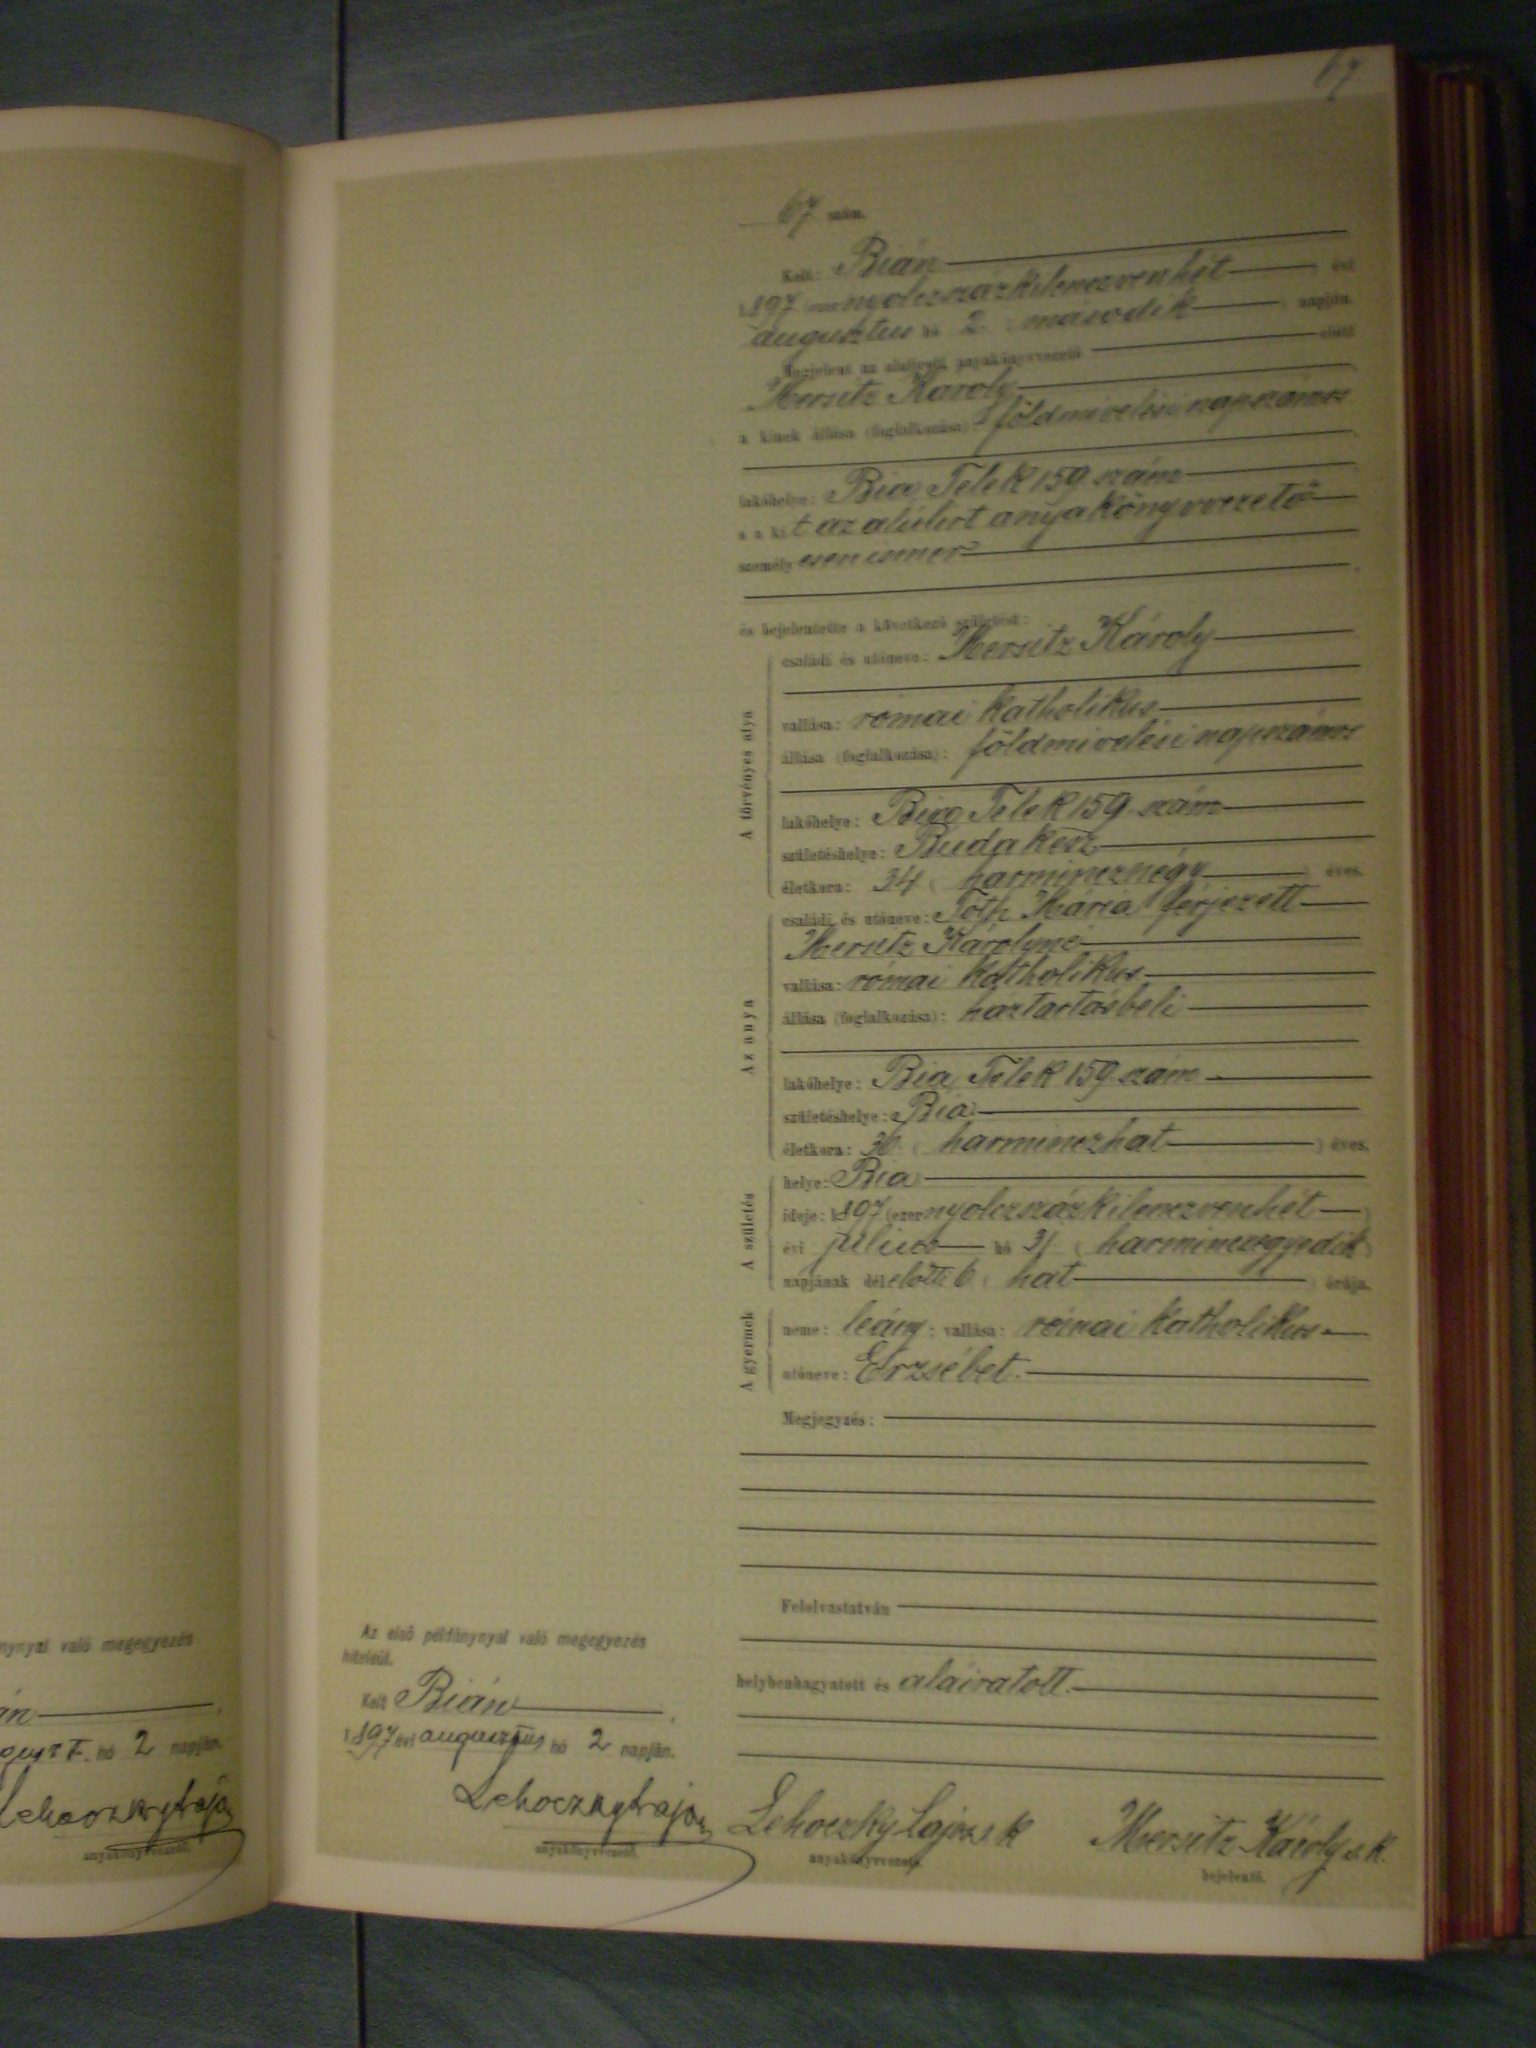 67
67 szám.
Kelt: Bián
1897 (ezer nyolczszázkilenczvenhét) évi
augusztus hó 2. (második) napján.
Megjelent az alulírott anyakönyvvezető előtt
Mersitz Károly
a kinek állása (foglalkozása): földmivelési napszámos
lakóhelye: Bia, Telek 159. szám
s a kit az alulirt anyakönyvvezető
személyesen ismer
és bejelentette a következő születést:
A törvényes atya
családi és utóneve: Mersitz Károly
vallása: római katholikus
állása (foglalkozása): földmivelési napszámos
lakóhelye: Bia, Telek 159. szám
születéshelye: Budakesz
életkora: 34 (harmincznégy) éves.
Az anya
családi és utóneve: Tóth Mária férjezett
Mersitz Károlyné
vallása: római katholikus
állása (foglalkozása): háztartásbeli
lakóhelye: Bia, Telek 159. szám
születéshelye: Bia
életkora: 36. (harminczhat) éves.
A születés
helye: Bia
ideje: 1897 (ezer nyolczszázkilenczvenhét)
évi julius hó 31 (harminczegyedik)
napjának délelőtti 6 (hat) órája.
A gyermek
neme: leány; vallása: római katholikus
utóneve: Erzsébet.
Megjegyzés:
Felolvastatván
helybenhagyatott és aláiratott.
Lehoczky Lajos s.k.
anyakönyvvezető.
Mersitz Károly s.k.
bejelentő.
Az első példánynyal való megegyezés
hiteléül.
Kelt Bián
1897 évi augusztus hó 2 napján.
Lehoczky Lajos
anyakönyvvezető.
nynyal való megegyezés
án
hó 2 napján.
Lehoczky Lajos
anyakönyvvezető.